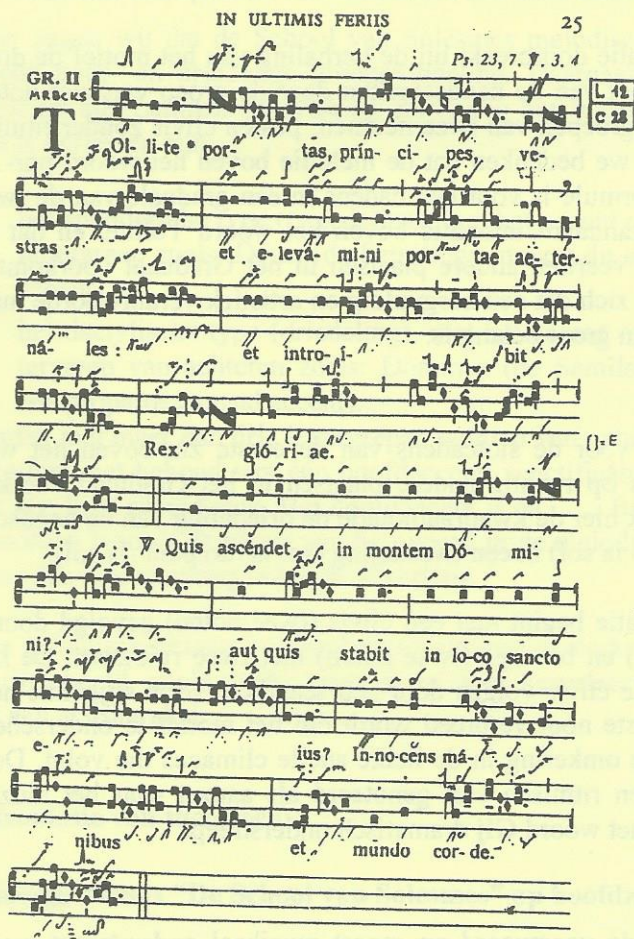 IN ULTIMIS FERIIS 25
Ps. 23, 7. ℣. 3. 4
GR. II
MRBCKS
L 12
C 28
TOl- li-te * por- tas, prín- ci- pes, ve-
stras : et e-levá- mi-ni por- tae ae-ter-
ná- les : et intro-í- bit
Rex gló-ri-ae.
℣. Quis ascéndet in montem Dó- mi-
ni? aut quis stabit in lo-co sancto
e- ius? In-no-cens má-
nibus et mundo cor-de.